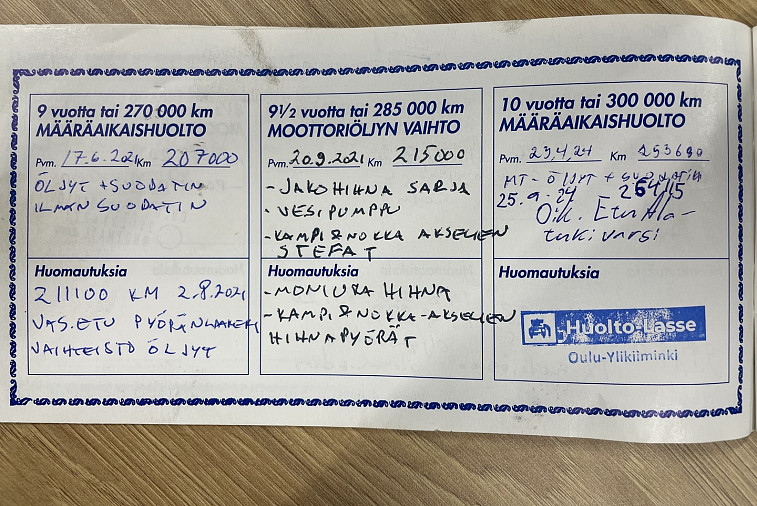 9 vuotta tai 270 000 km
MÄÄRÄAIKAISHUOLTO
Pvm. 17.6.2021 Km 207000
ÖLJYT + SUODATIN
ILMAN SUODATIN
Huomautuksia
211100 KM 2.8.2021
VAS.ETU PYÖRÄNLAAKERI
VAIHTEISTO ÖLJYT
9½ vuotta tai 285 000 km
MOOTTORIÖLJYN VAIHTO
Pvm. 20.9.2021 Km 215000
- JAKOHIHNA SARJA
- VESIPUMPPU
- KAMPI & NOKKA AKSELIEN
STEFAT
Huomautuksia
- MONIURA HIHNA
- KAMPI & NOKKA-AKSELIEN
HIHNAPYÖRÄT
10 vuotta tai 300 000 km
MÄÄRÄAIKAISHUOLTO
Pvm. 23,4,24 Km 253690
MT-ÖLJYT + SUODATIN
25.9.24
Oik. Etu Ala-
tukivarsi
Huomautuksia
Huolto-Lasse
Oulu-Ylikiiminki